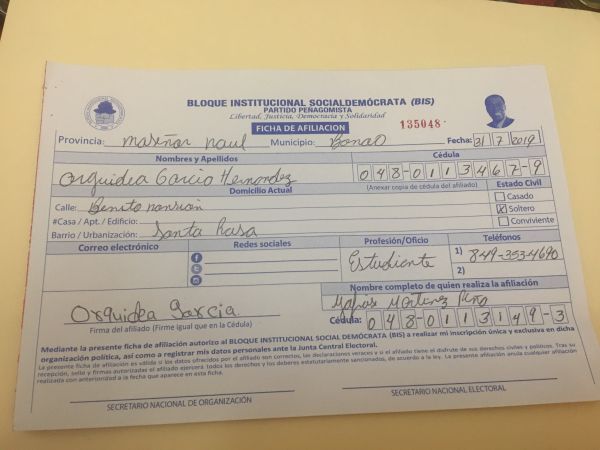 BLOQUE INSTITUCIONAL SOCIALDEMÓCRATA (BIS)
PARTIDO PEÑAGOMISTA
Libertad, Justicia, Democracia y Solidaridad
FICHA DE AFILIACIÓN 135048
Provincia: Maseñor Nouel Municipio: Bonao Fecha: 31/7/2019
Nombres y Apellidos Cédula
Orquidea Garcia Hernandez 048-0113467-9
Domicilio Actual (Anexar copia de cédula del afiliado) Estado Civil
Calle: Benito Casado
#Casa / Apt. / Edificio: X Soltero
Barrio / Urbanización: Santa Rosa Conviviente
Correo electrónico Redes sociales Profesión/Oficio Teléfonos
Estudiante 1) 849-353-4690
2)
Nombre completo de quien realiza la afiliación
Martinez
Orquidea Garcia
Firma del afiliado (Firme igual que en la Cédula) Cédula: 048-0113149-3
Mediante la presente ficha de afiliación autorizo al BLOQUE INSTITUCIONAL SOCIAL DEMÓCRATA (BIS) a realizar mi inscripción única y exclusiva en dicha
organización política, así como a registrar mis datos personales ante la Junta Central Electoral.
La presente ficha de afiliación es válida si los datos ofrecidos por el afiliado son correctos, las declaraciones veraces y si el afiliado tiene el disfrute de sus derechos civiles y políticos. Tras su
recepción, sello y firmas autorizadas el afiliado ejercerá todos los derechos y los deberes estatutariamente sancionados, de acuerdo a la ley. La presente afiliación anula cualquier afiliación
realizada con anterioridad a la fecha que aparece en esta ficha.
SECRETARIO NACIONAL DE ORGANIZACIÓN SECRETARIO NACIONAL ELECTORAL